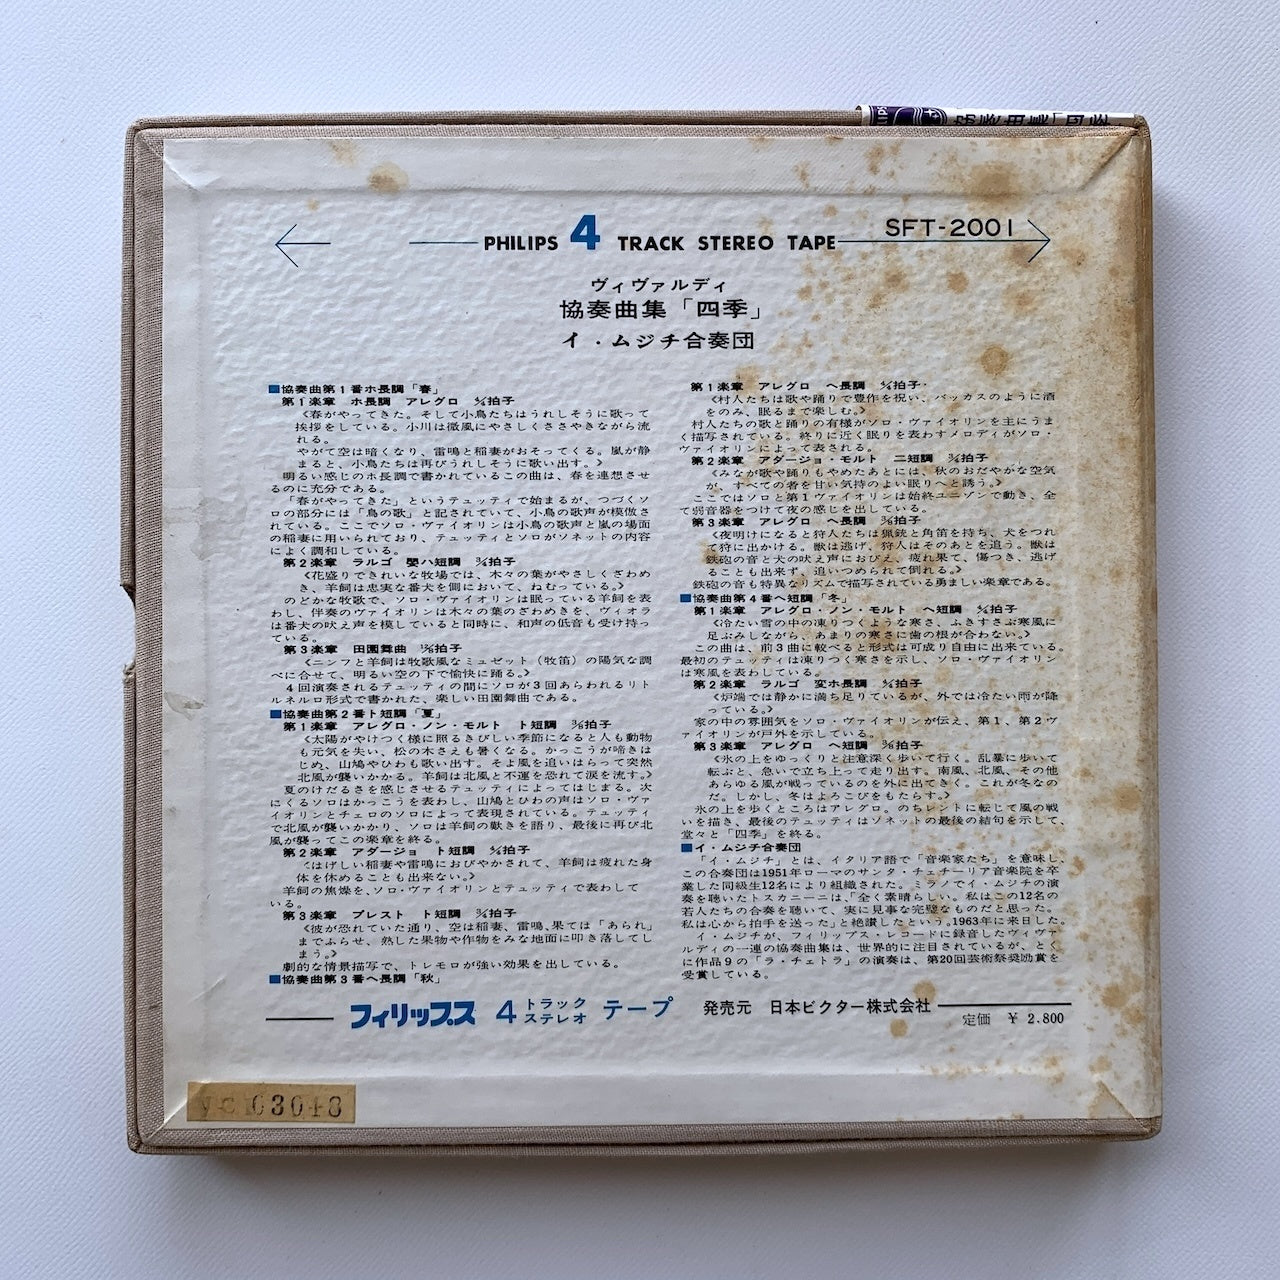 PHILIPS 4 TRACK STEREO TAPE
SFT-2001
ヴィヴァルディ
協奏曲集「四季」
イ・ムジチ合奏団
■協奏曲第1番ホ長調「春」
第1楽章 ホ長調 アレグロ 4/4拍子
《春がやってきた。そして小鳥たちはうれしそうに歌って
挨拶をしている。小川は微風にやさしくささやきながら流
れる。
やがて空は暗くなり、雷鳴と稲妻がおそってくる。嵐が静
まると、小鳥たちは再びうれしそうに歌い出す。》
明るい感じのホ長調で書かれているこの曲は、春を連想させ
るのに充分である。
「春がやってきた」というテュッティで始まるが、つづくソ
ロの部分には「鳥の歌」と記されていて、小鳥の歌声が模倣さ
れている。ここでソロ・ヴァイオリンは小鳥の歌声と嵐の場面
の稲妻に用いられており、テュッティとソロがソネットの内容
によく調和している。
第2楽章 ラルゴ 嬰ハ短調 3/4拍子
《花盛りできれいな牧場では、木々の葉がやさしくざわめ
き、羊飼は忠実な番犬を側において、ねむっている。》
のどかな牧歌で、ソロ・ヴァイオリンは眠っている羊飼を表
わし、伴奏のヴァイオリンは木々の葉のざわめきを、ヴィオラ
は番犬の吠え声を模していると同時に、和声の低音も受け持っ
ている。
第3楽章 田園舞曲 12/8拍子
《ニンフと羊飼は牧歌風なミュゼット(牧笛)の陽気な調
べに合せて、明るい空の下で愉快に踊る。》
4回演奏されるテュッティの間にソロが3回あらわれるリト
ルネルロ形式で書かれた、楽しい田園舞曲である。
■協奏曲第2番ト短調「夏」
第1楽章 アレグロ・ノン・モルト ト短調 3/8拍子
《太陽がやけつく様に照るきびしい季節になると人も動物
も元気を失い、松の木さえも暑くなる。かっこうが啼きは
じめ、山鳩やひわも歌い出す。そよ風を追いはらって突然
北風が襲いかかる。羊飼は北風と不運を恐れて涙を流す。》
夏のけだるさを感じさせるテュッティによってはじまる。次
にくるソロはかっこうを表わし、山鳩とひわの声はソロ・ヴァ
イオリンとチェロのソロによって表現されている。テュッティ
で北風が襲いかかり、ソロは羊飼の歎きを語り、最後に再び北
風が襲ってこの楽章を終る。
第2楽章 アダージョ ト短調 4/4拍子
《はげしい稲妻や雷鳴におびやかされて、羊飼は疲れた身
体を休めることも出来ない。》
羊飼の焦燥を、ソロ・ヴァイオリンとテュッティで表わして
いる。
第3楽章 プレスト ト短調 3/4拍子
《彼が恐れていた通り、空は稲妻、雷鳴、果ては「あられ」
までふらせ、熟した果物や作物をみな地面に叩き落してし
まう。》
劇的な情景描写で、トレモロが強い効果を出している。
■協奏曲第3番ヘ長調「秋」
第1楽章 アレグロ ヘ長調 4/4拍子
《村人たちは歌や踊りで豊作を祝い、バッカスのように酒
をのみ、眠るまで楽しむ。》
村人たちの歌と踊りの有様がソロ・ヴァイオリンを主にうま
く描写されている。終りに近く眠りを表わすメロディがソロ・
ヴァイオリンによって表される。
第2楽章 アダージョ・モルト ニ短調 3/4拍子
《みなが歌や踊りもやめたあとには、秋のおだやかな空気
が、すべての者を甘い気持のよい眠りへと誘う。》
ここではソロと第1ヴァイオリンは始終ユニゾンで動き、全
て弱音器をつけて夜の感じを出している。
第3楽章 アレグロ ヘ長調 3/8拍子
《夜明けになると狩人たちは猟銃と角笛を持ち、犬をつれ
て狩に出かける。獣は逃げ、狩人はそのあとを追う。獣は
鉄砲の音と犬の吠え声におびえ、疲れ果て、傷つき、逃げ
ることも出来ず、追いつめられて倒れる。》
鉄砲の音も特異なリズムで描写されている勇ましい楽章である。
■協奏曲第4番ヘ短調「冬」
第1楽章 アレグロ・ノン・モルト ヘ短調 4/4拍子
《冷たい雪の中の凍りつくような寒さ、ふきすさぶ寒風に
足ぶみしながら、あまりの寒さに歯の根が合わない。》
この曲は、前3曲に較べると形式は可成り自由に出来ている。
最初のテュッティは凍りつく寒さを示し、ソロ・ヴァイオリン
は寒風を表わしている。
第2楽章 ラルゴ 変ホ長調 4/4拍子
《炉端では静かに満ち足りているが、外では冷たい雨が降
っている。》
家の中の雰囲気をソロ・ヴァイオリンが伝え、第1、第2ヴ
ァイオリンが戸外を示している。
第3楽章 アレグロ ヘ短調 3/8拍子
《氷の上をゆっくりと注意深く歩いて行く。乱暴に歩いて
転ぶと、急いで立ち上って走り出す。南風、北風、その他
あらゆる風が戦っているのを外に出てきく。これが冬なの
だ。しかし、冬はよろこびをもたらす。》
氷の上を歩くところはアレグロ。のちレントに転じて風の戦
いを描き、最後のテュッティはソネットの最後の結句を示して、
堂々と「四季」を終る。
■イ・ムジチ合奏団
「イ・ムジチ」とは、イタリア語で「音楽家たち」を意味し、
この合奏団は1951年ローマのサンタ・チェチーリア音楽院を卒
業した同級生12名により組織された。ミラノでイ・ムジチの演
奏を聴いたトスカニーニは、「全く素晴らしい。私はこの12名の
若人たちの合奏を聴いて、実に見事な完璧なものだと思った。
私は心から拍手を送った」と絶讃したという。1963年に来日した。
イ・ムジチが、フィリップス・レコードに録音したヴィヴァ
ルディの一連の協奏曲集は、世界的に注目されているが、とく
に作品9の「ラ・チェトラ」の演奏は、第20回芸術祭奨励賞を
受賞している。
フィリップス 4 トラック ステレオ テープ 発売元 日本ビクター株式会社
定価 ¥ 2,800
03048